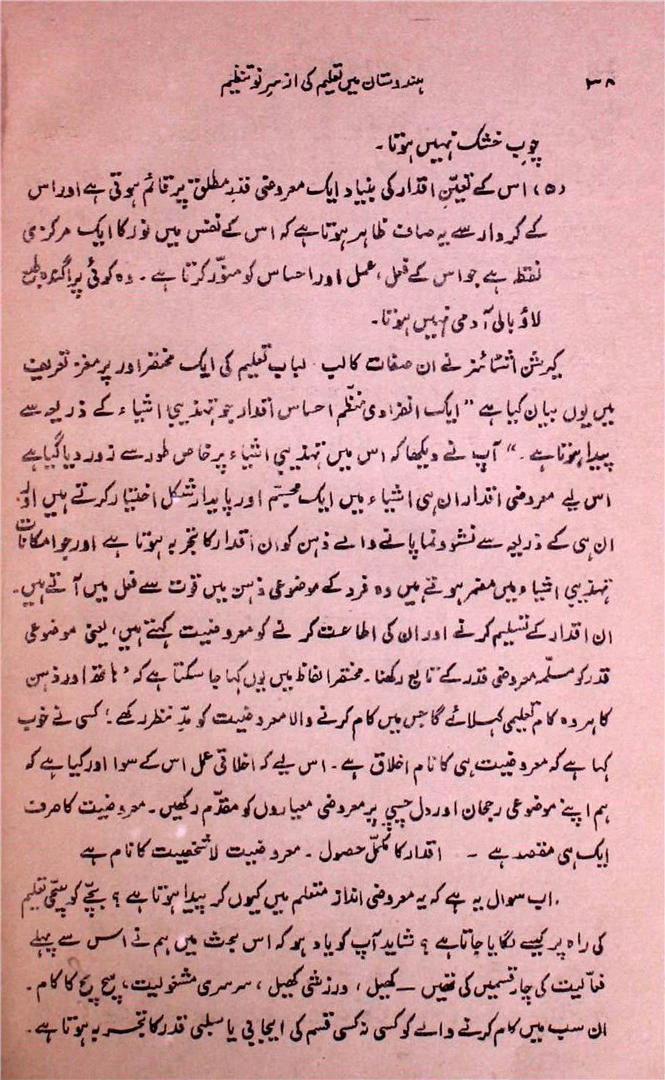 ۳۸
ہندوستان میں تعلیم کی از سرِ نو تنظیم
چوبِ خشک نہیں ہوتا۔
(۵) اس کے تعیّنِ اقدار کی بنیاد ایک معروضی قدرِ مطلق پر قائم ہوتی ہے اور اس
کے کردار سے یہ صاف ظاہر ہوتا ہے کہ اس کے نفس میں نور کا ایک مرکزی
نقطہ ہے جو اس کے فعل، عمل اور احساس کو منوّر کرتا ہے۔ وہ کوئی پراگندہ طبع
لاؤبالی آدمی نہیں ہوتا۔
کیرشن اشٹائنز نے ان صفات کا لب لباب تعلیم کی ایک مختصر اور پُر مغز تعریف
میں یوں بیان کیا ہے ”ایک انفرادی منظّم احساس اقدار جو تہذیبی اشیاء کے ذریعہ سے
پیدا ہوتا ہے۔“ آپ نے دیکھا کہ اس میں تہذیبی اشیاء پر خاص طور سے زور دیا گیا ہے
اس لیے معروضی اقدار ان ہی اشیاء میں ایک مجسّم اور پایدار شکل اختیار کرتے ہیں اور
ان ہی کے ذریعہ سے نشوونما پانے والے ذہن کو ان اقدار کا تجربہ ہوتا ہے اور جو امکانات
تہذیبی اشیاء میں مضمر ہوتے ہیں وہ فرد کے موضوعی ذہن میں قوت سے فعل میں آتے ہیں۔
ان اقدار کے تسلیم کرنے اور ان کی اطاعت کرنے کو معروضیت کہتے ہیں، یعنی موضوعی
قدر کو مسلّمہ معروضی قدر کے تابع رکھنا۔ مختصر الفاظ میں یوں کہا جا سکتا ہے کہ ’ہاتھ اور ذہن
کا ہر وہ کام تعلیمی کہلائے گا جس میں کام کرنے والا معروضیت کو مدِّ نظر رکھے‘، کسی نے خوب
کہا ہے کہ معروضیت ہی کا نام اخلاق ہے۔ اس لیے کہ اخلاقی عمل اس کے سوا اور کیا ہے کہ
ہم اپنے موضوعی رجحان اور دل چسپی پر معروضی معیاروں کو مقدّم رکھیں۔ معروضیت کا صرف
ایک ہی مقصد ہے ۔۔ اقدار کا مکمّل حصول۔ معروضیت لاشخصیت کا نام ہے
اب سوال یہ ہے کہ یہ معروضی انداز متعلم میں کیوں کر پیدا ہوتا ہے؟ بچّے کو سچّی تعلیم
کی راہ پر کیسے لگایا جاتا ہے؟ شاید آپ کو یاد ہو کہ اس بحث میں ہم نے اس سے پہلے
فعالیت کی چار قسمیں کی تھیں ــ کھیل، ورزشی کھیل، سرسری مشغولیت، سچ مچ کا کام۔
ان سب میں کام کرنے والے کو کسی نہ کسی قسم کی ایجابی یا سلبی قدر کا تجربہ ہوتا ہے۔